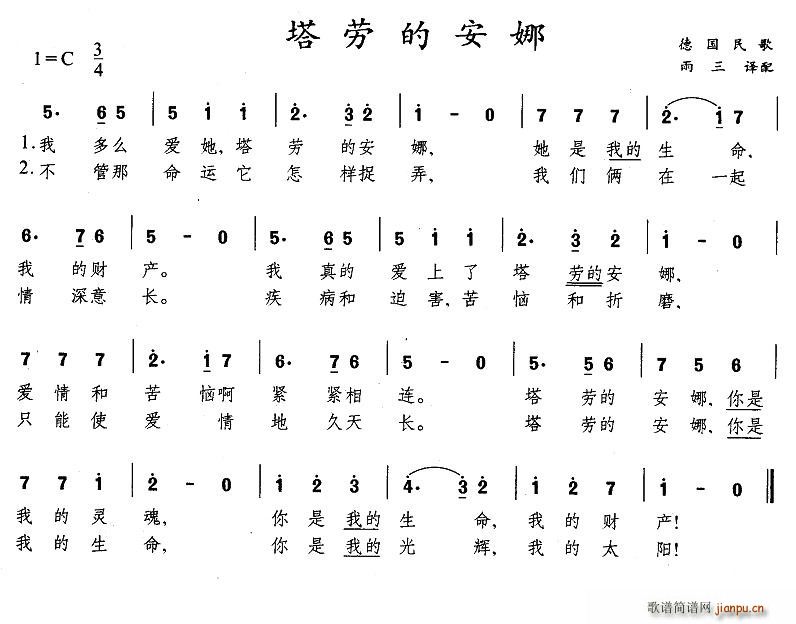 塔劳的安娜
德国民歌
1=C 3/4
雨三 译配
5· 6 5 | 5 1 1 | 2· 3 2 | 1 - 0 | 7 7 7 | 2· 1 7 |
1.我 多么 爱她,塔 劳 的安 娜, 她是我的生 命,
2.不 管那 命运它 怎 样捉 弄, 我们俩在 一起
6· 7 6 | 5 - 0 | 5· 6 5 | 5 1 1 | 2· 3 2 | 1 - 0 |
我 的财 产。 我 真的 爱上了 塔 劳的安 娜,
情 深意 长。 疾 病和 迫害,苦 恼 和折 磨,
7 7 7 | 2· 1 7 | 6· 7 6 | 5 - 0 | 5· 5 6 | 7 5 6 |
爱情和 苦 恼啊 紧 紧相 连。 塔 劳的 安 娜,你是
只能使 爱 情 地 久天 长。 塔 劳的 安 娜,你是
7 7 1 | 2 - 0 | 1 2 3 | 4· 3 2 | 1 2 7 | 1 - 0 ‖
我的灵 魂, 你是我的生 命,我的财 产!
我的生 命, 你是我的光 辉,我的太 阳!
歌谱简谱网 jianpu.cn